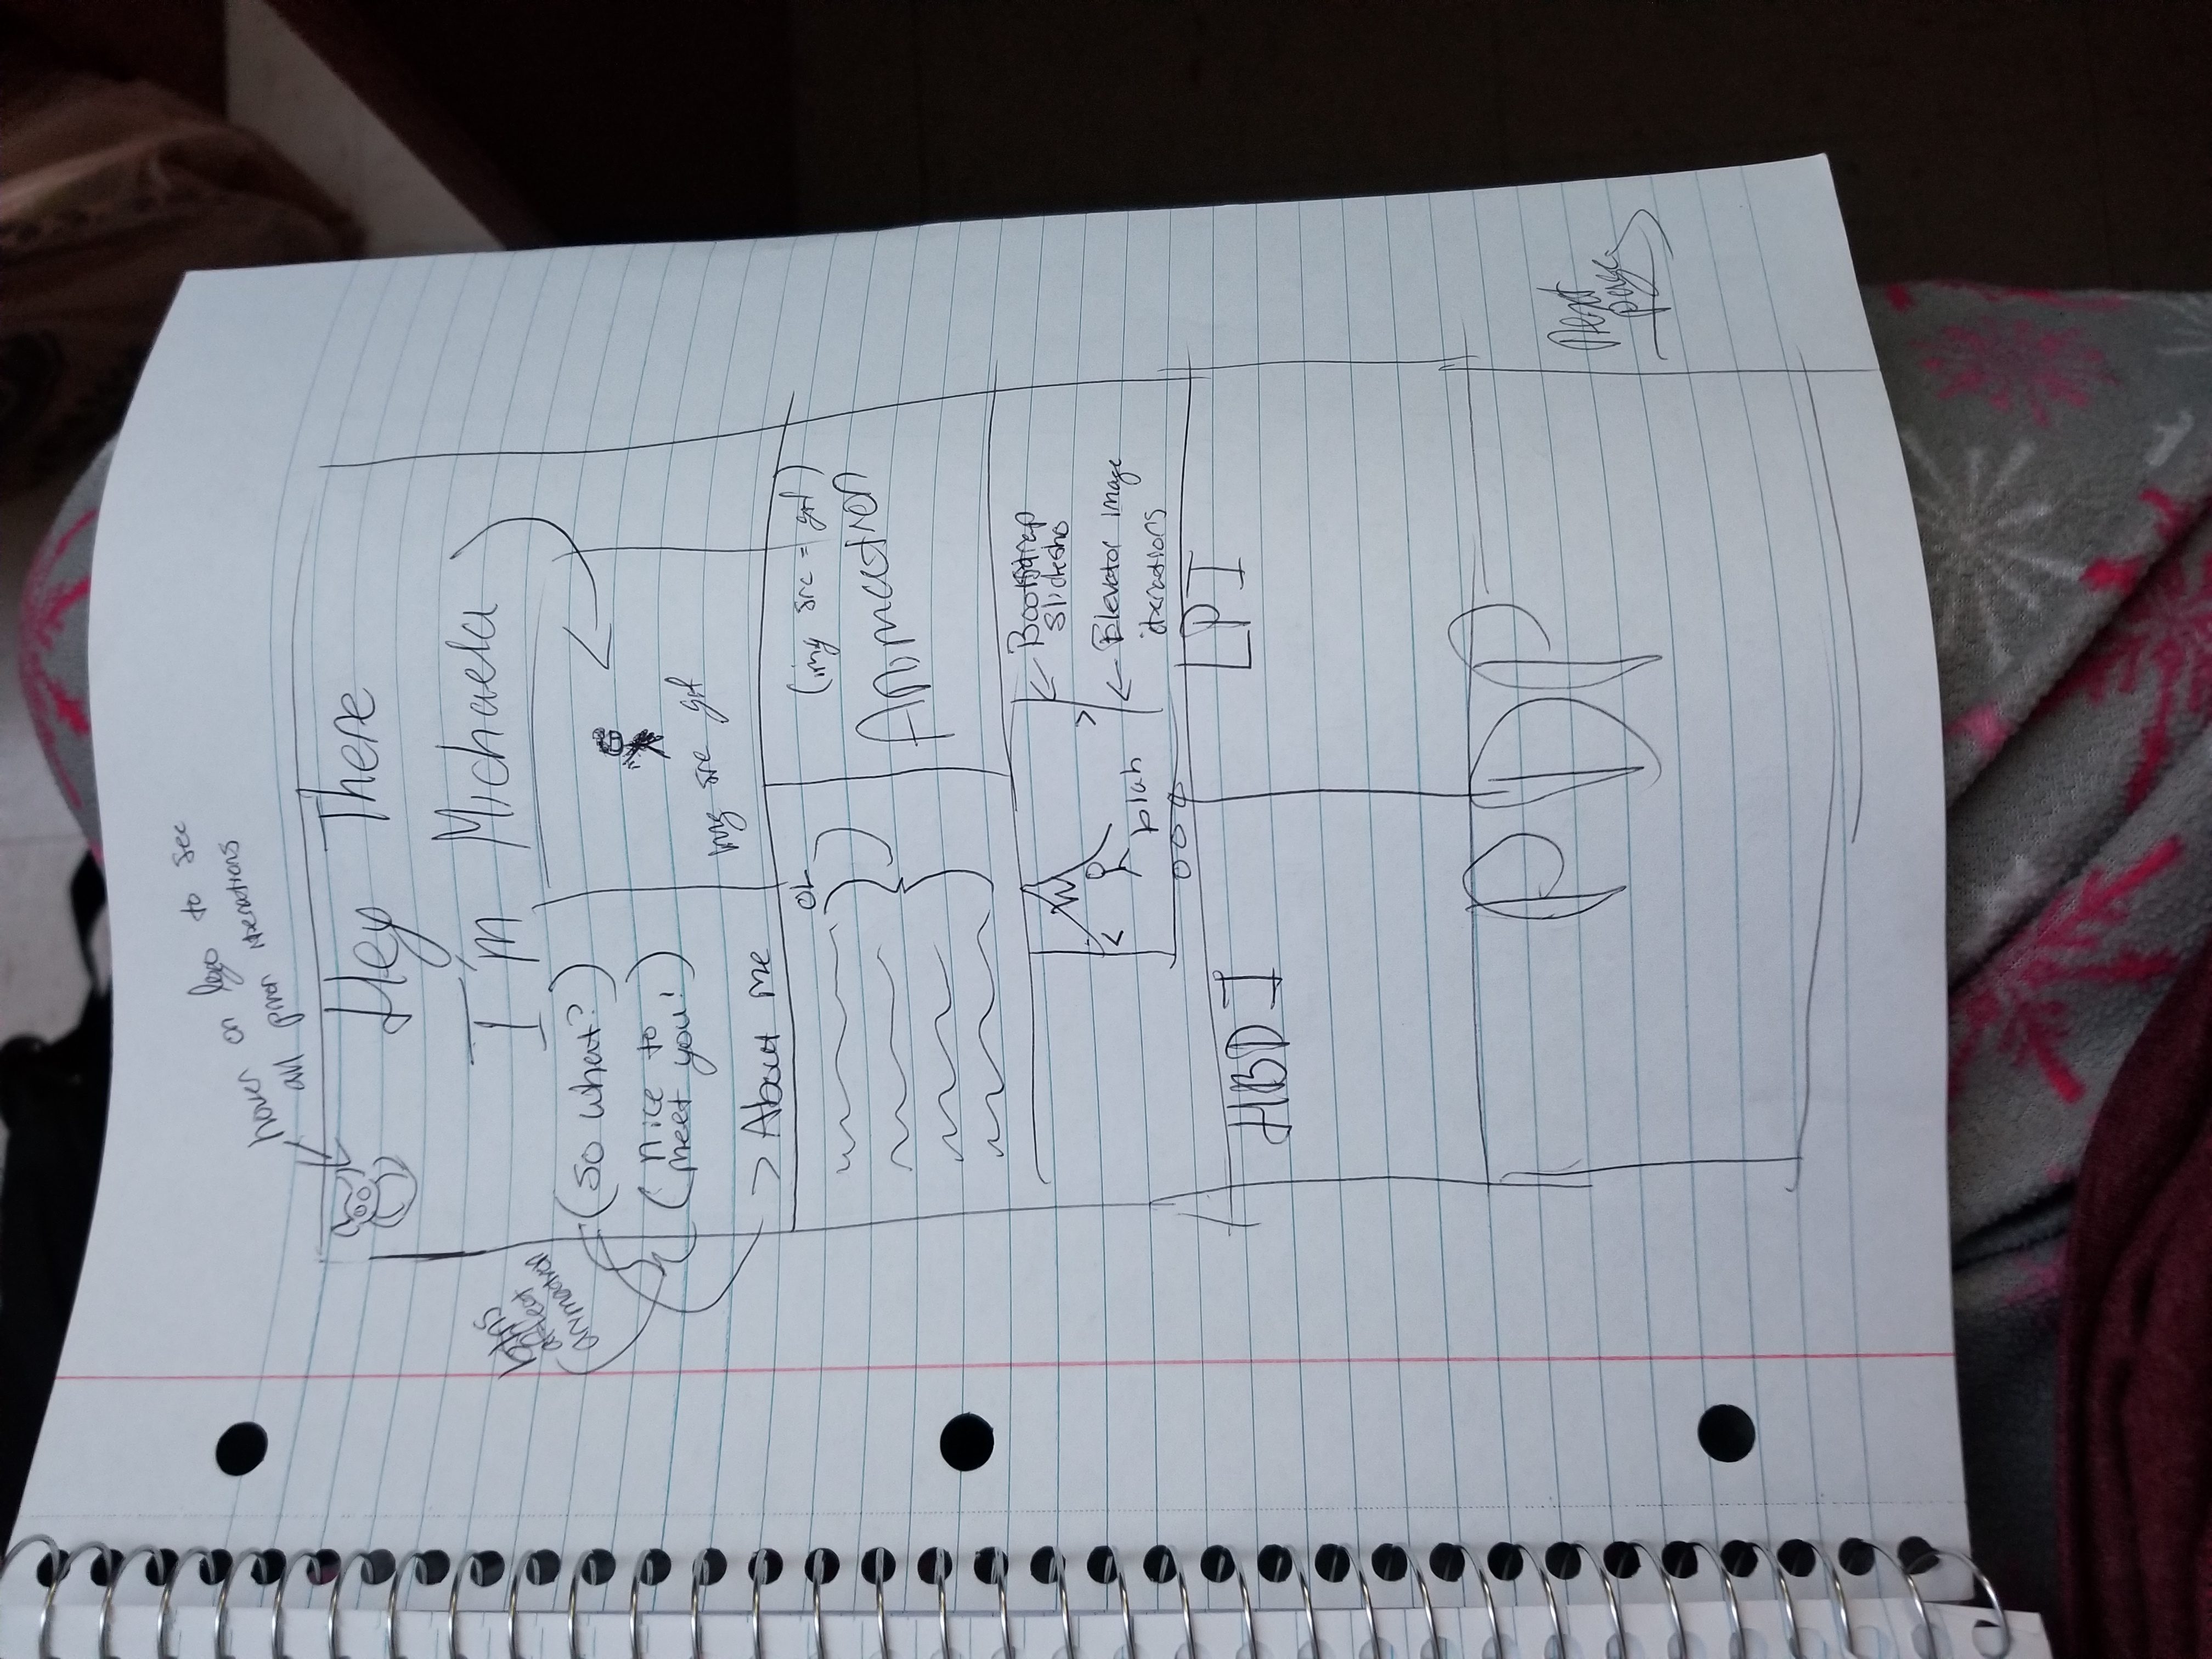 hover on logo to see
all prior iterations
Hey There
I'm Michaela
btns
affect
animation
(So what?)
(nice to
meet you!)
> About me
img src gif
OL
(img src = gif)
Animation
Bootstrap
Slidesho
Elevator image
iterations
blah
HBDI
LPI
PDP
Next
page